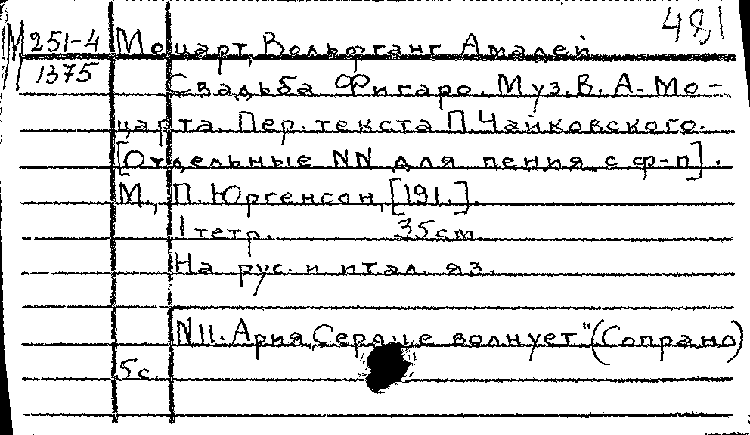 481
М 251-4 Моцарт, Вольфганг Амадей
1375 Свадьба Фигаро. Муз. В. А. Мо-
царта. Пер. текста П. Чайковского.
[Отдельные NN для пения с ф-п].
М., П. Юргенсон, [191.].
1 тетр. 35 cm
На рус. и итал. яз.
N11. Ария „Сердце волнует" (Сопрано)
5с.